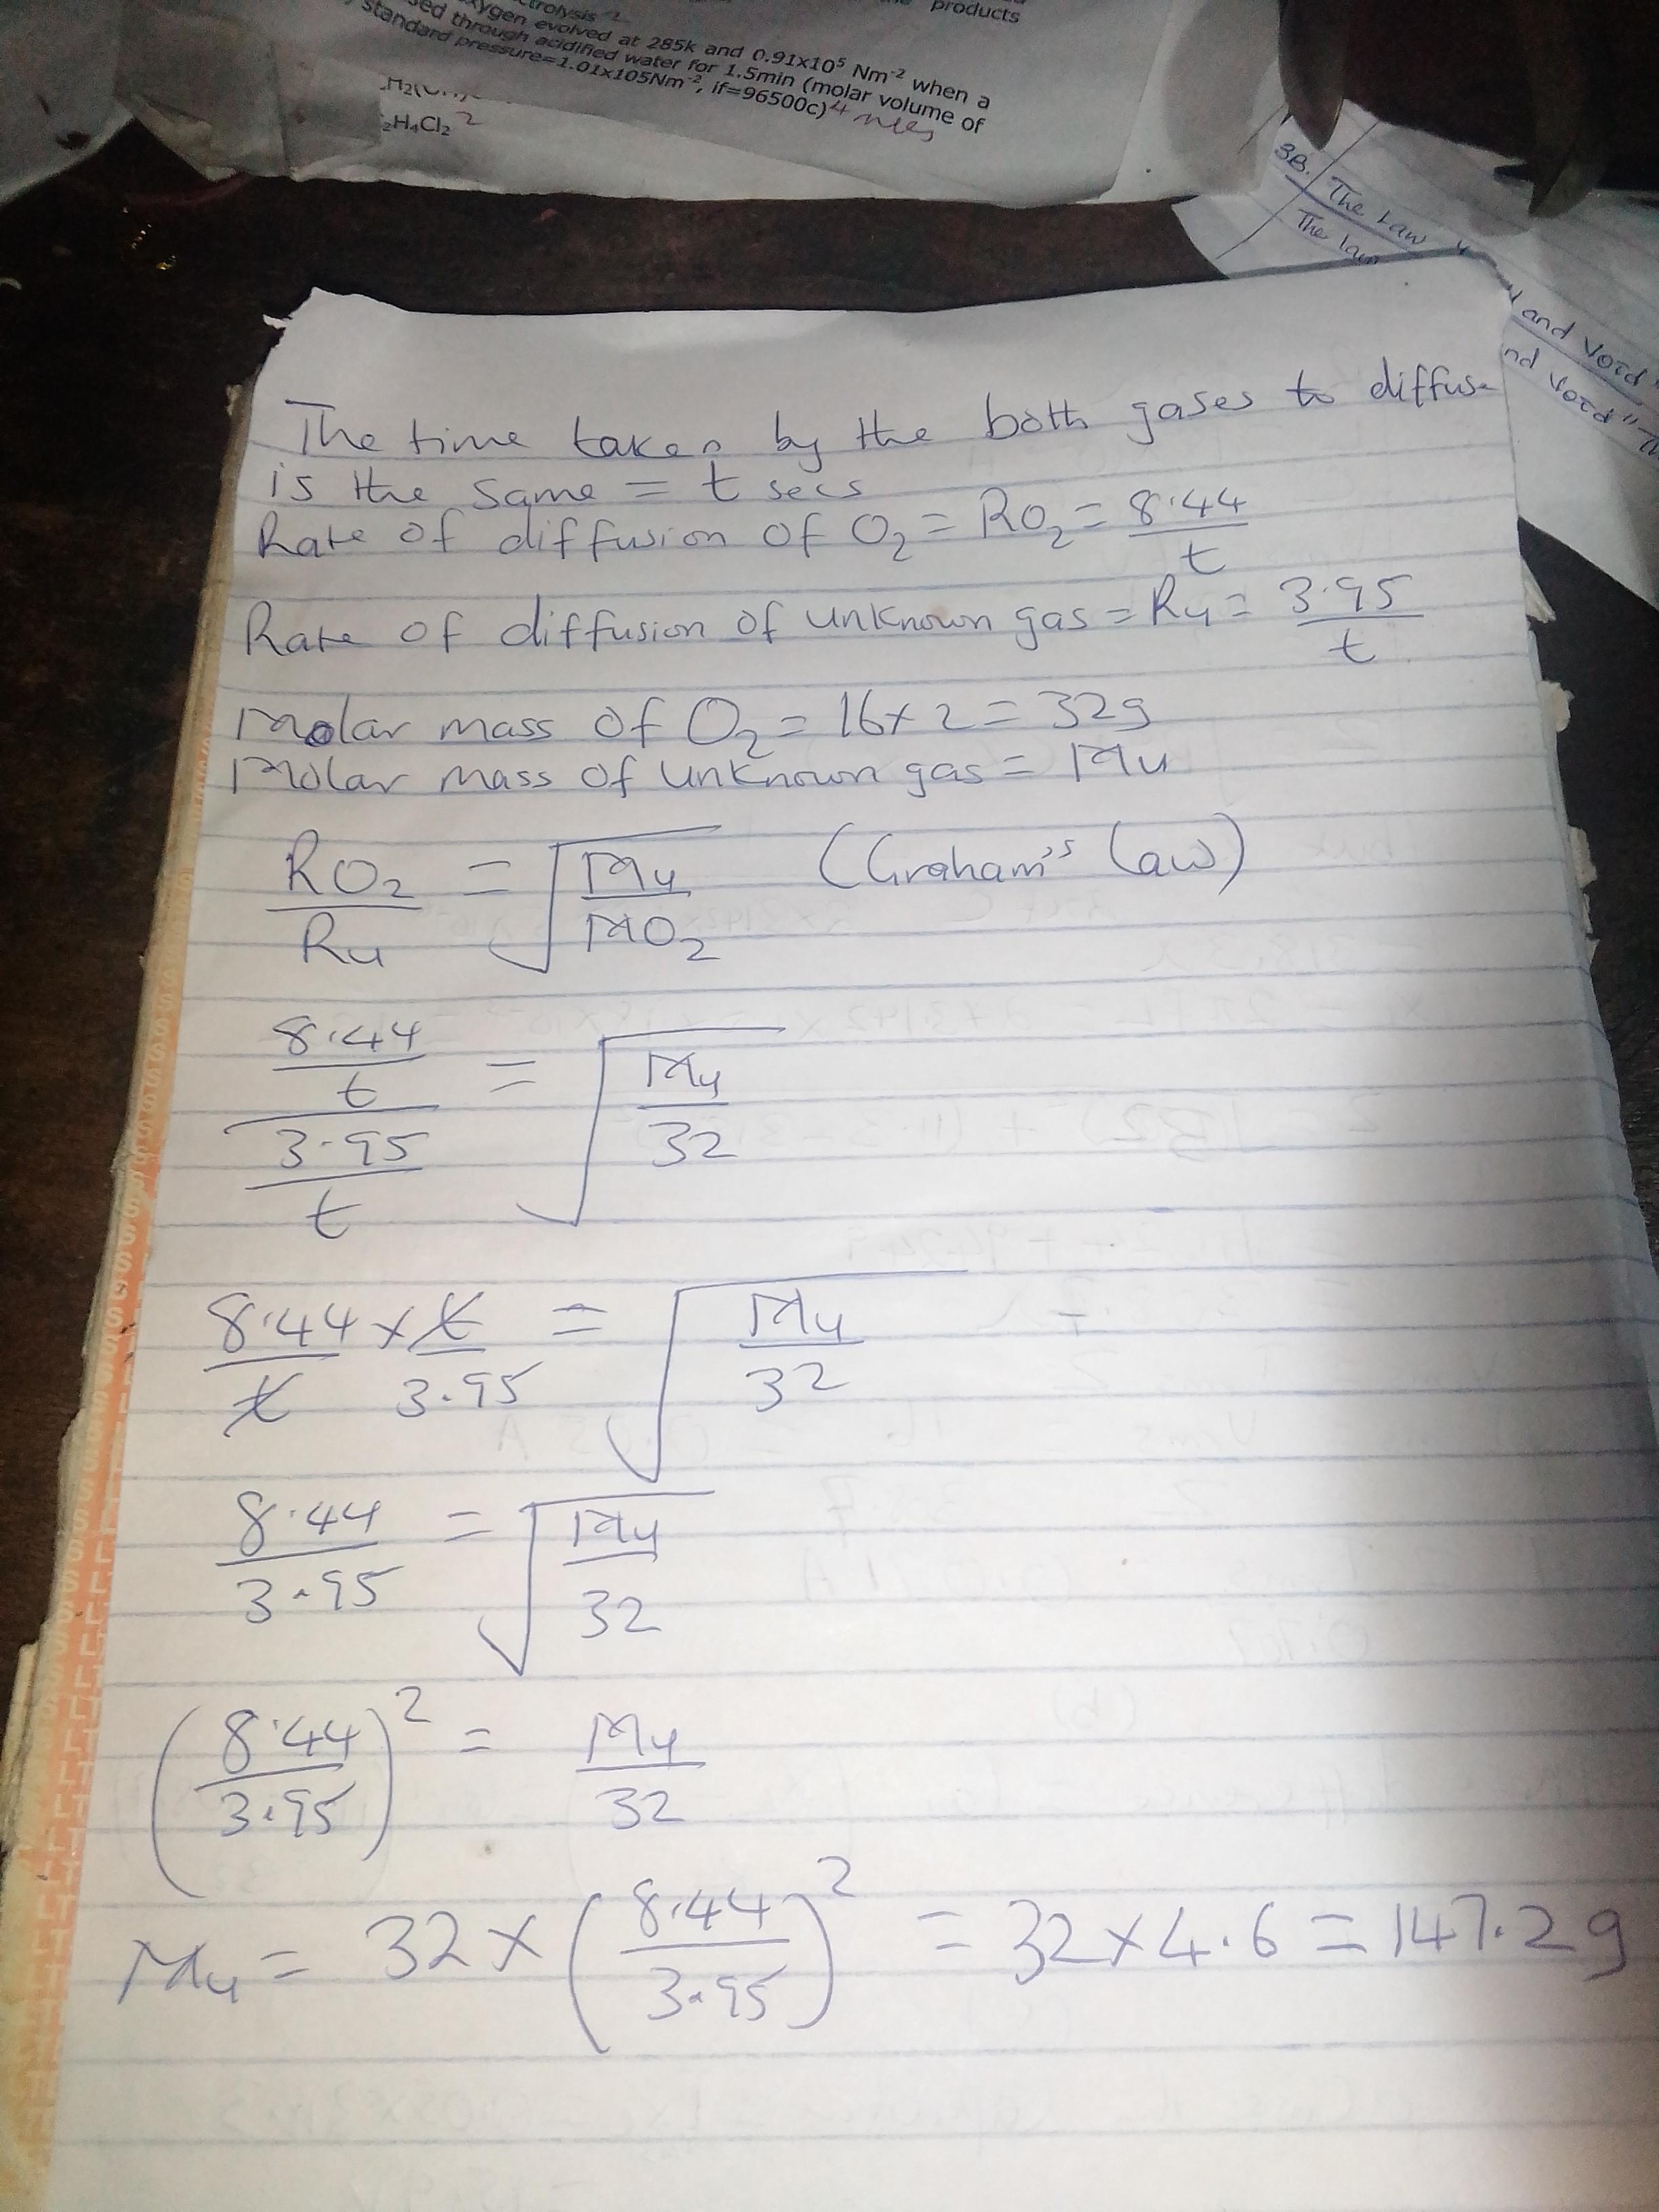 products
oxygen evolved at 285k and 0.91x10⁵ Nm⁻² when a
sed through acidified water for 1.5min (molar volume of
standard pressure=1.01x105Nm⁻², if=96500c) 4 mks
₂H₄Cl₂ 2
3B. The Law
The law
and Void"
nd void"
The time taken by the both gases to diffuse
is the same = t secs
Rate of diffusion of O₂ = RO₂ = 8.44/t
Rate of diffusion of unknown gas = Ru = 3.95/t
Molar mass of O₂ = 16x2 = 32g
Molar mass of unknown gas = Mu
RO₂/Ru = √(Mu/MO₂) (Graham's Law)
(8.44/t)/(3.95/t) = √(Mu/32)
8.44/t x t/3.95 = √(Mu/32)
8.44/3.95 = √(Mu/32)
(8.44/3.95)² = Mu/32
Mu = 32 x (8.44/3.95)² = 32 x 4.6 = 147.2g